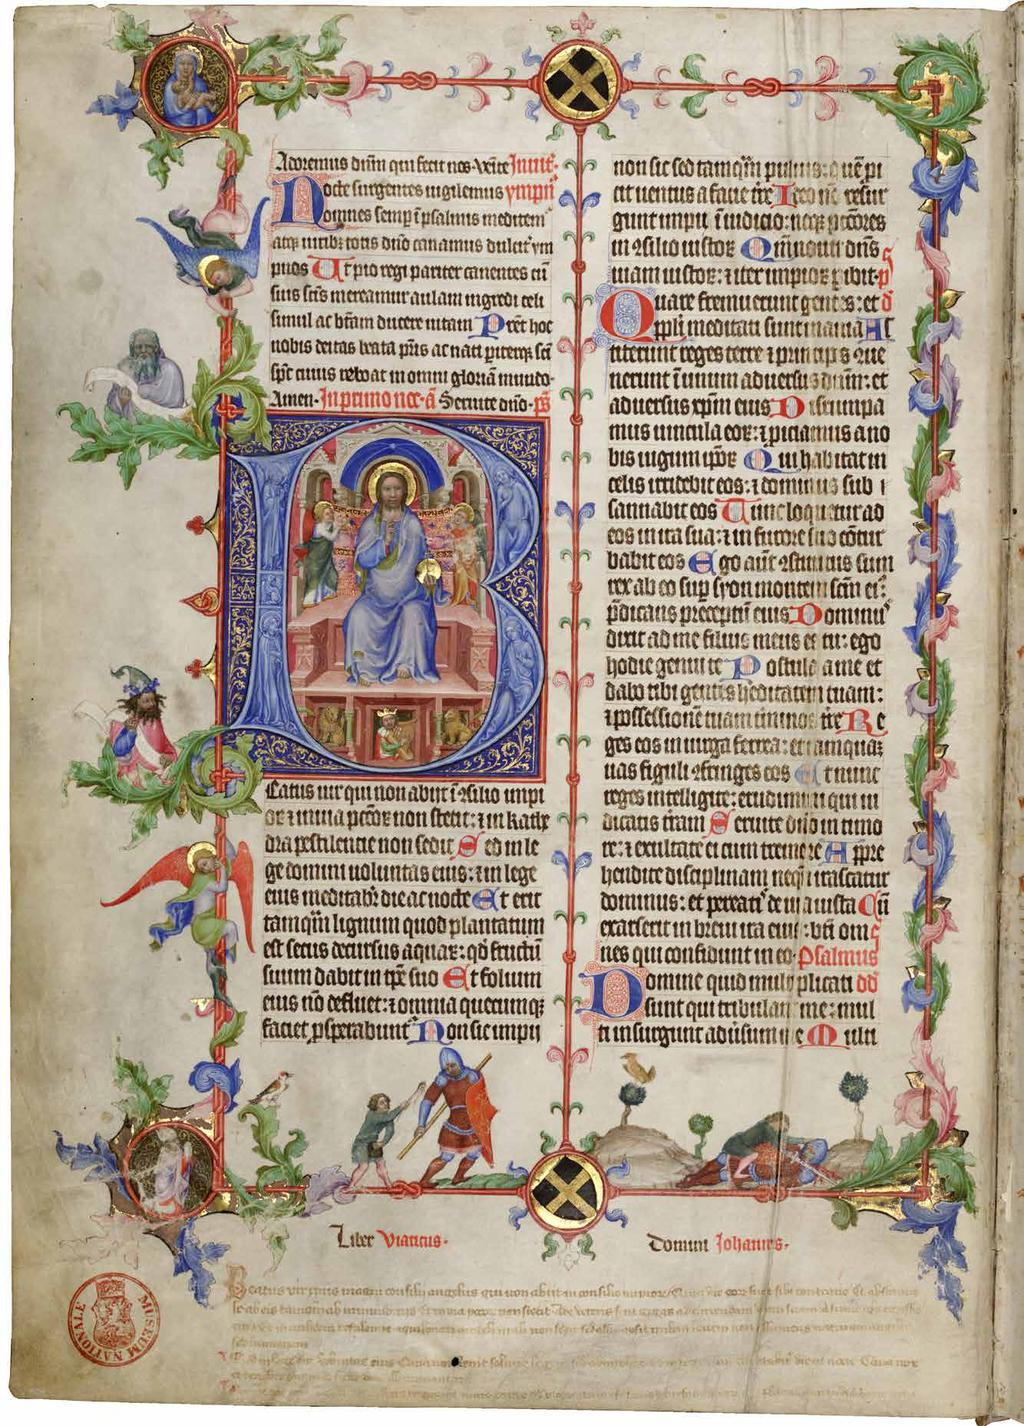 Adoremus dnm qui fecit nos. Venite Invit.
Nocte surgentes vigilemus ympn
omnes semp i psalmis meditem
atq viribz totis dno canamus dulcit ym
pnos Ut pio regi pariter canentes cu
suis scis mereamur aulam ingredi celi
simul ac btam ducere vitam Prest hoc
nobis deitas beata pris ac nati piterq sci
spc cuius reboat in omni gloria mundo
Amen. In primo noc. a Servite dno. ps
B
eatus vir qui non abijt i gsilio impi
or z in via pctor non stetit: z in kathe
dra pestilencie non sedit Sed in le
ge domini voluntas eius: z in lege
eius meditabr die ac nocte Et erit
tamqm lignum quod plantatum
est secus decursus aquar: qd fructu
suum dabit in tpe suo Et folium
eius no defluet: z omnia quecumqz
faciet psperabunt Non sic impij
non sic sed tamqm puluis: que pi
cit uentus a facie tre Ideo no resur
gunt impij i iudicio: neqz pctores
in gsilio iustor Qm nouit dns
uiam iustor: z iter impior pibit. ps
Quare fremuerunt gentes: et dd
ppli meditati sunt inania As
titerunt reges terre z principes que
nerunt i unum aduersus dnm: et
aduersus xpm eius Disrumpa
mus uincula eor: z piciamus a no
bis iugum ipor Qui habitat in
celis irridebit eos: z dominus sub
sannabit eos Tunc loquetur ad
eos in ira sua: z in furore suo cotur
babit eos Ego aut gstitutus sum
rex ab eo sup syon montem scm ei:
pdicans preceptu eius Dominu
dixit ad me filius meus es tu: ego
hodie genui te Postula a me et
dabo tibi gentes hereditatem tuam:
z possessione tuam tminos tre Re
ges eos in uirga ferrea: et tamquaz
uas figuli gfringes eos Et nunc
reges intelligite: erudimini qui iu
dicatis tram Seruite dno in timo
re: z exultate ei cum tremore Appre
hendite disciplinam neqn irascatur
dominus: et pereatis de uia iusta Cu
exarserit in breui ira eius: bti om
nes qui confidunt in eo. Psalmus
Domine quid multiplicati dd
sunt qui tribulant me: mul
ti insurgunt aduersum me Multi
Liber Viaticus. Domini Johannis.
MUSEUM NATIONALE